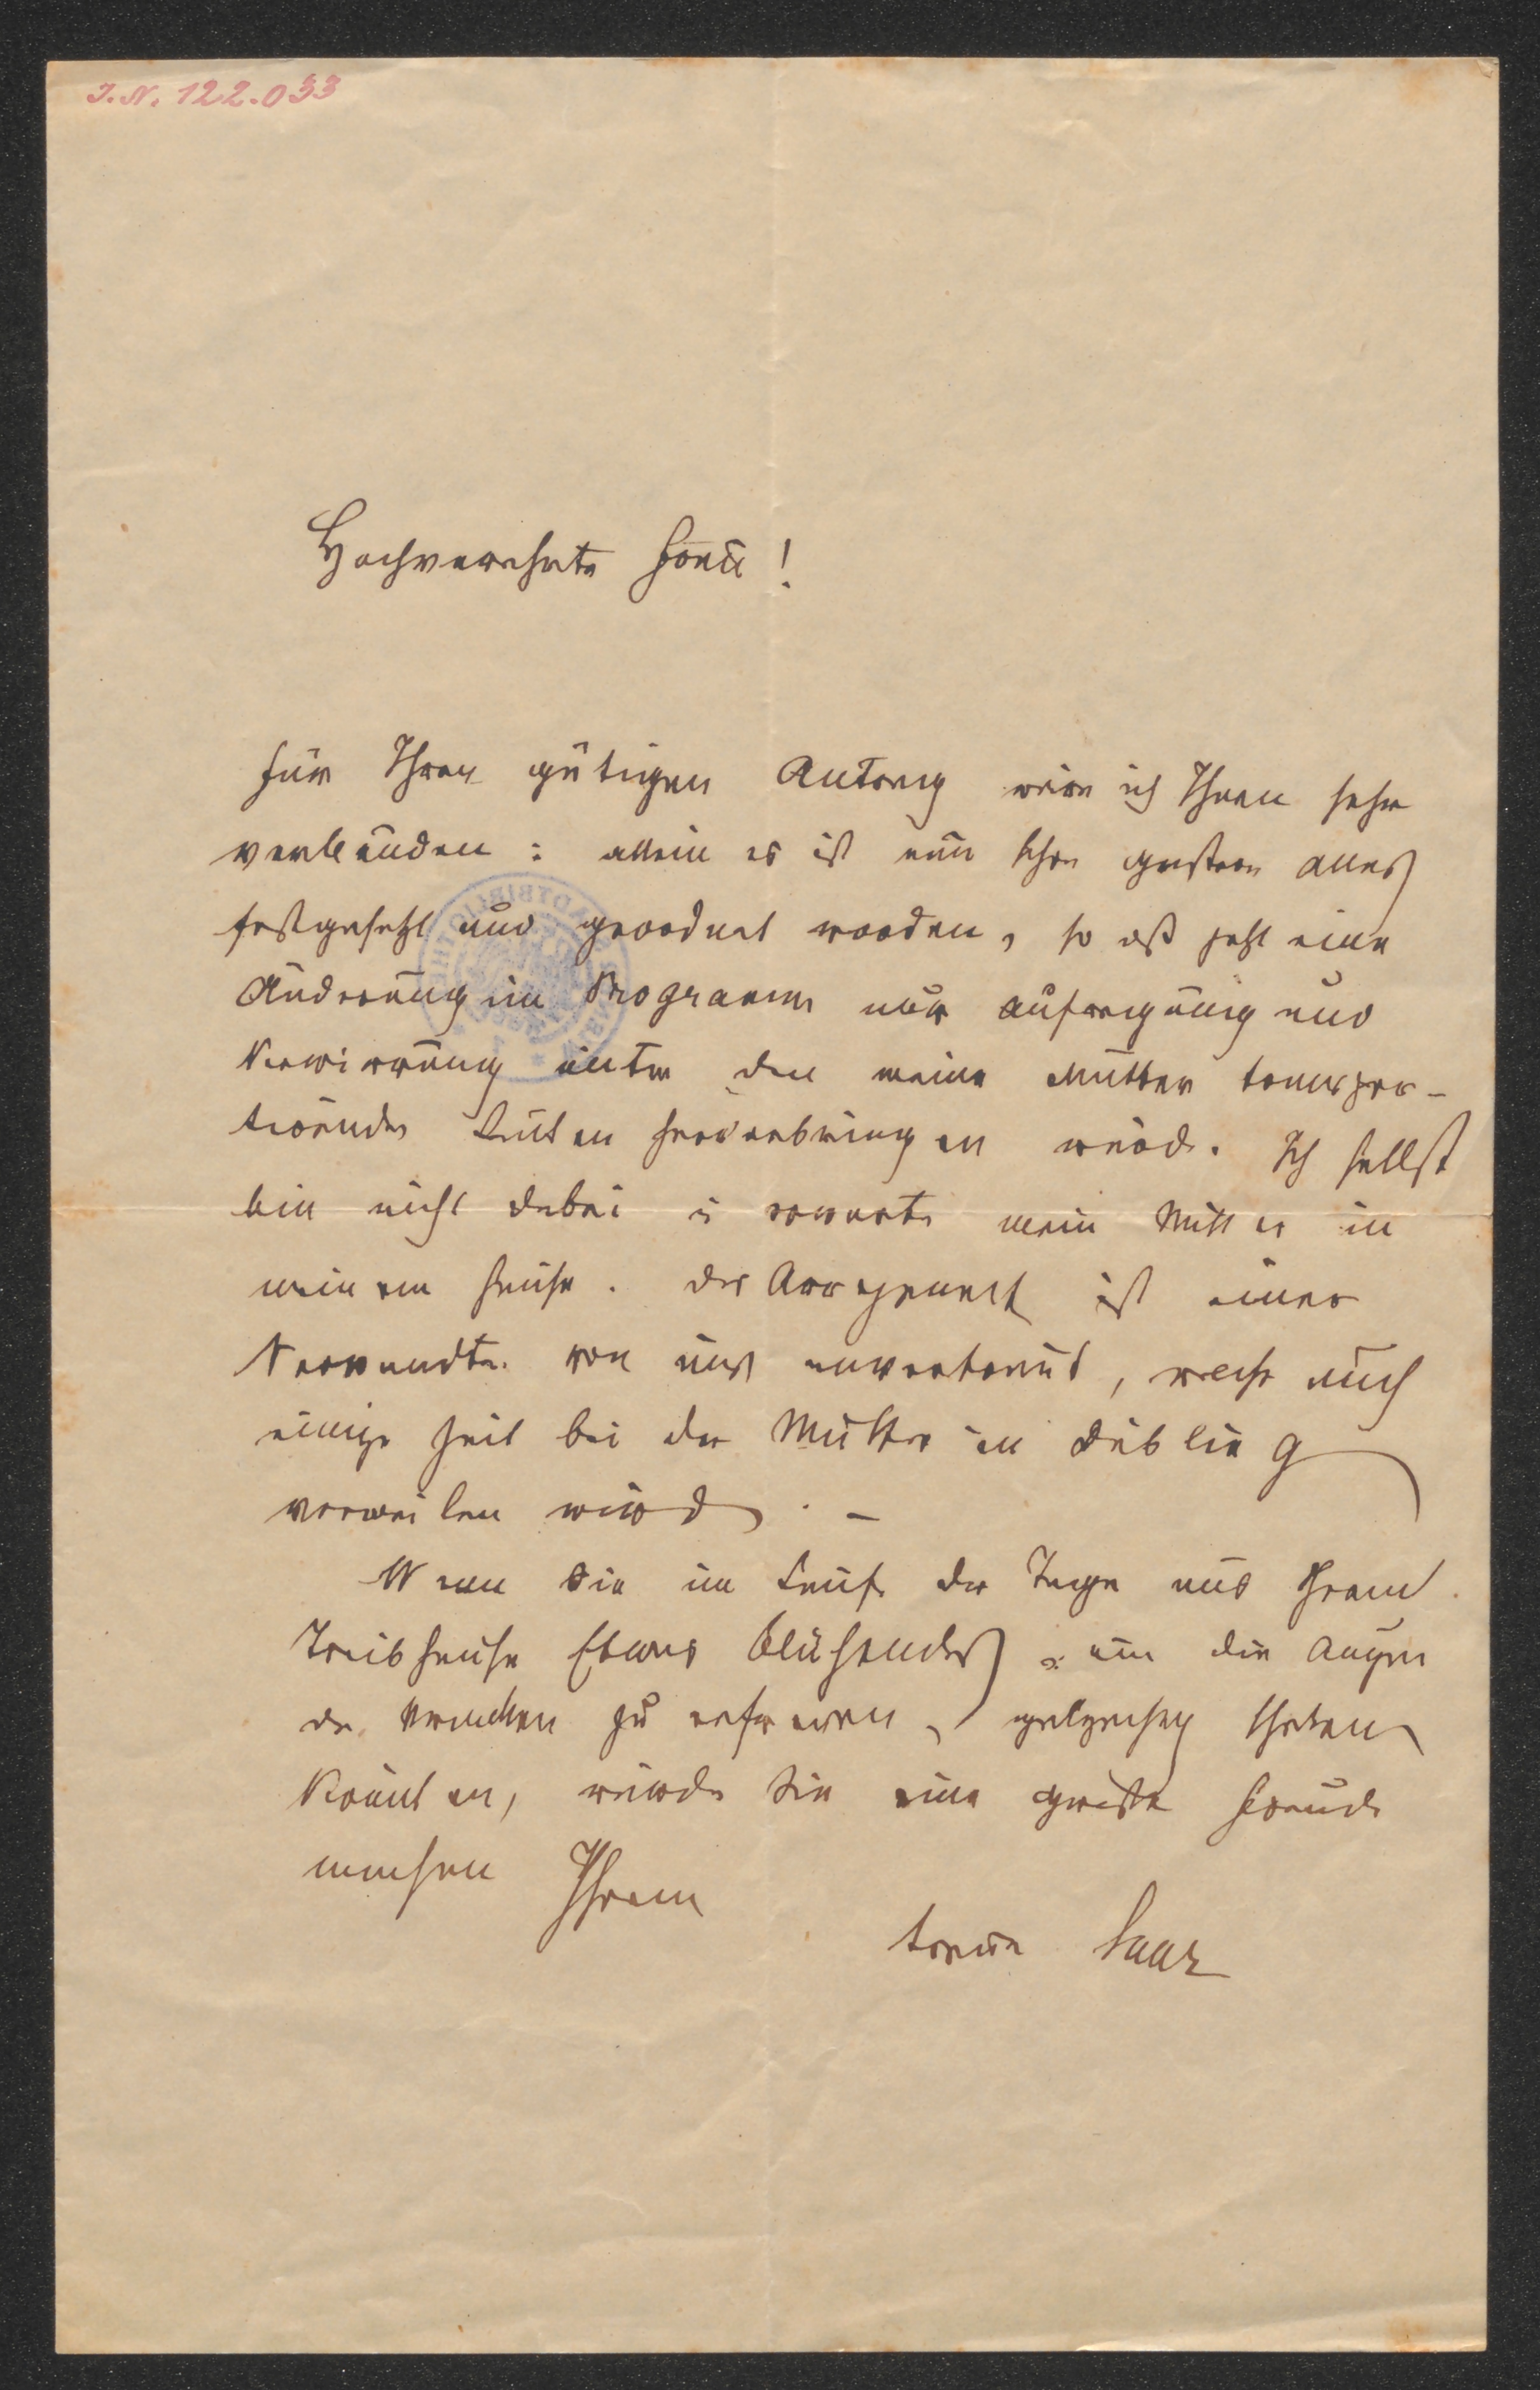 J. N. 122.033
Hochverehrte Frau!
Für Ihren gütigen Antrag wäre ich Ihnen sehr
verbunden: allein es ist nun schon gestern alles
festgesetzt und geordnet worden, so daß jetzt eine
Änderung im Programm nur Aufregung und
Verwirrung unter den meine Mutter transpor-
tirenden Leuten hervorbringen würde. Ich selbst
bin nicht dabei u erwarte meine Mutter in
meinem Hause. Das Arrangement ist einer
Verwandten von uns anvertraut, welche auch
einige Zeit bei der Mutter in Döbling
verweilen wird. –
Wenn Sie im Laufe der Tage aus Ihrem
Treibhause Etwas blühendes, um die Augen
der Kranken zu erfreuen, gelegentlich
könnten, würde Sie eine große Freude
machen Ihrem
treuen Saar